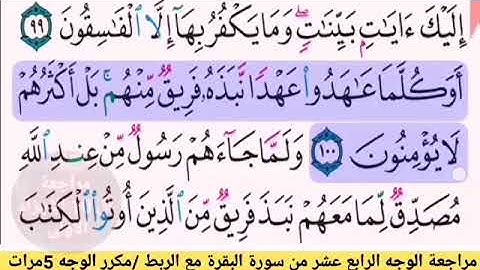 إِلَيْكَ ءَايَـٰتِۭ بَيِّنَـٰتٍۖ وَمَا يَكْفُرُ بِهَآ إِلَّا ٱلْفَـٰسِقُونَ ٩٩
أَوَكُلَّمَا عَـٰهَدُوا۟ عَهْدًا نَّبَذَهُۥ فَرِيقٌ مِّنْهُمۚ بَلْ أَكْثَرُهُمْ
لَا يُؤْمِنُونَ ١٠٠ وَلَمَّا جَآءَهُمْ رَسُولٌ مِّنْ عِندِ ٱللَّهِ
مُصَدِّقٌ لِّمَا مَعَهُمْ نَبَذَ فَرِيقٌ مِّنَ ٱلَّذِينَ أُوتُوا۟ ٱلْكِتَـٰبَ
مراجعة الوجه الرابع عشر من سورة البقرة مع الربط /مكرر الوجه 5مرات